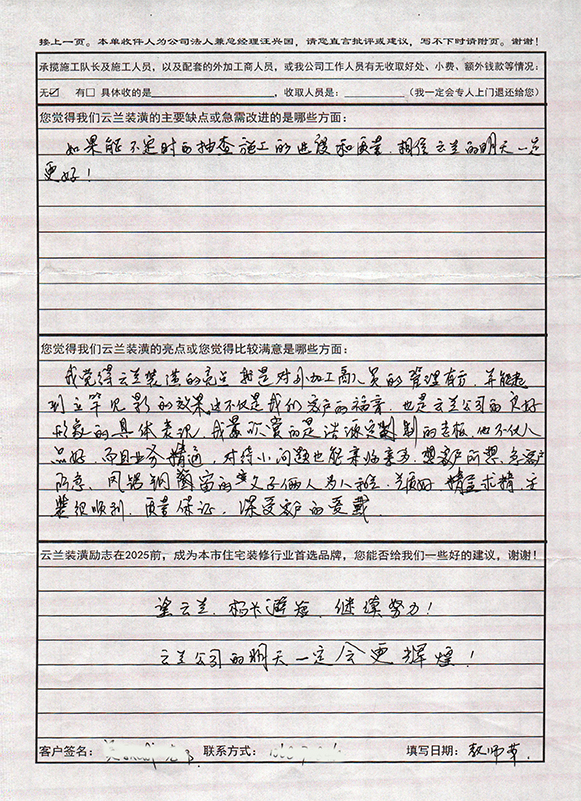 接上一页。本单收件人为公司法人兼总经理汪兴国，请您直言批评或建议，写不下时请附页。谢谢！
承揽施工队长及施工人员，以及配套的外加工商人员，或我公司工作人员有无收取好处、小费、额外钱款等情况：
无☑ 有□ 具体收的是＿＿＿＿＿＿，收取人员是：＿＿＿＿＿＿（我一定会专人上门退还给您）
您觉得我们云兰装潢的主要缺点或急需改进的是哪些方面：
如果能不定时的抽查施工的进度和质量，相信云兰的明天一定
更好！
您觉得我们云兰装潢的亮点或您觉得比较满意是哪些方面：
我觉得云兰装潢的亮点就是对外加工商人员的管理有方，并能起
到立竿见影的效果，这不仅是我们客户的福音，也是云兰公司的良好
形象的具体表现，我最欣赏的是 定制 的老板，他不仅人
品好，而且业务精通，对待小问题也能亲临亲为，想客户所想，急客户
所急，凤铝铜 窗的 父子俩人为人和 精益求精 安
装很顺利，质量保证，深受客户的爱戴
云兰装潢励志在2025前，成为本市住宅装修行业首选品牌，您能否给我们一些好的建议，谢谢！
望云兰，扬长避短，继续努力！
云兰公司的明天一定会更辉煌！
客户签名： 联系方式： 填写日期：教师节.